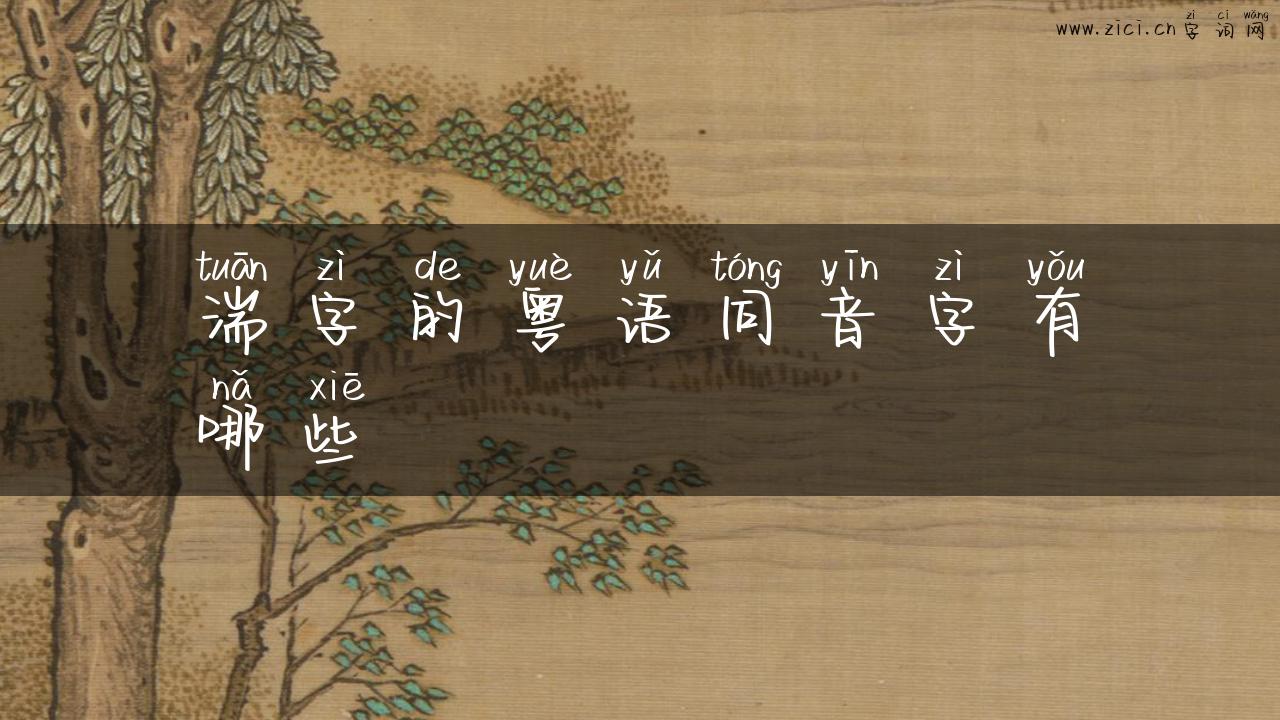 zì cí wǎng
www.zici.cn 字词网
tuān zì de yuè yǔ tóng yīn zì yǒu
湍字的粤语同音字有
nǎ xiē
哪些